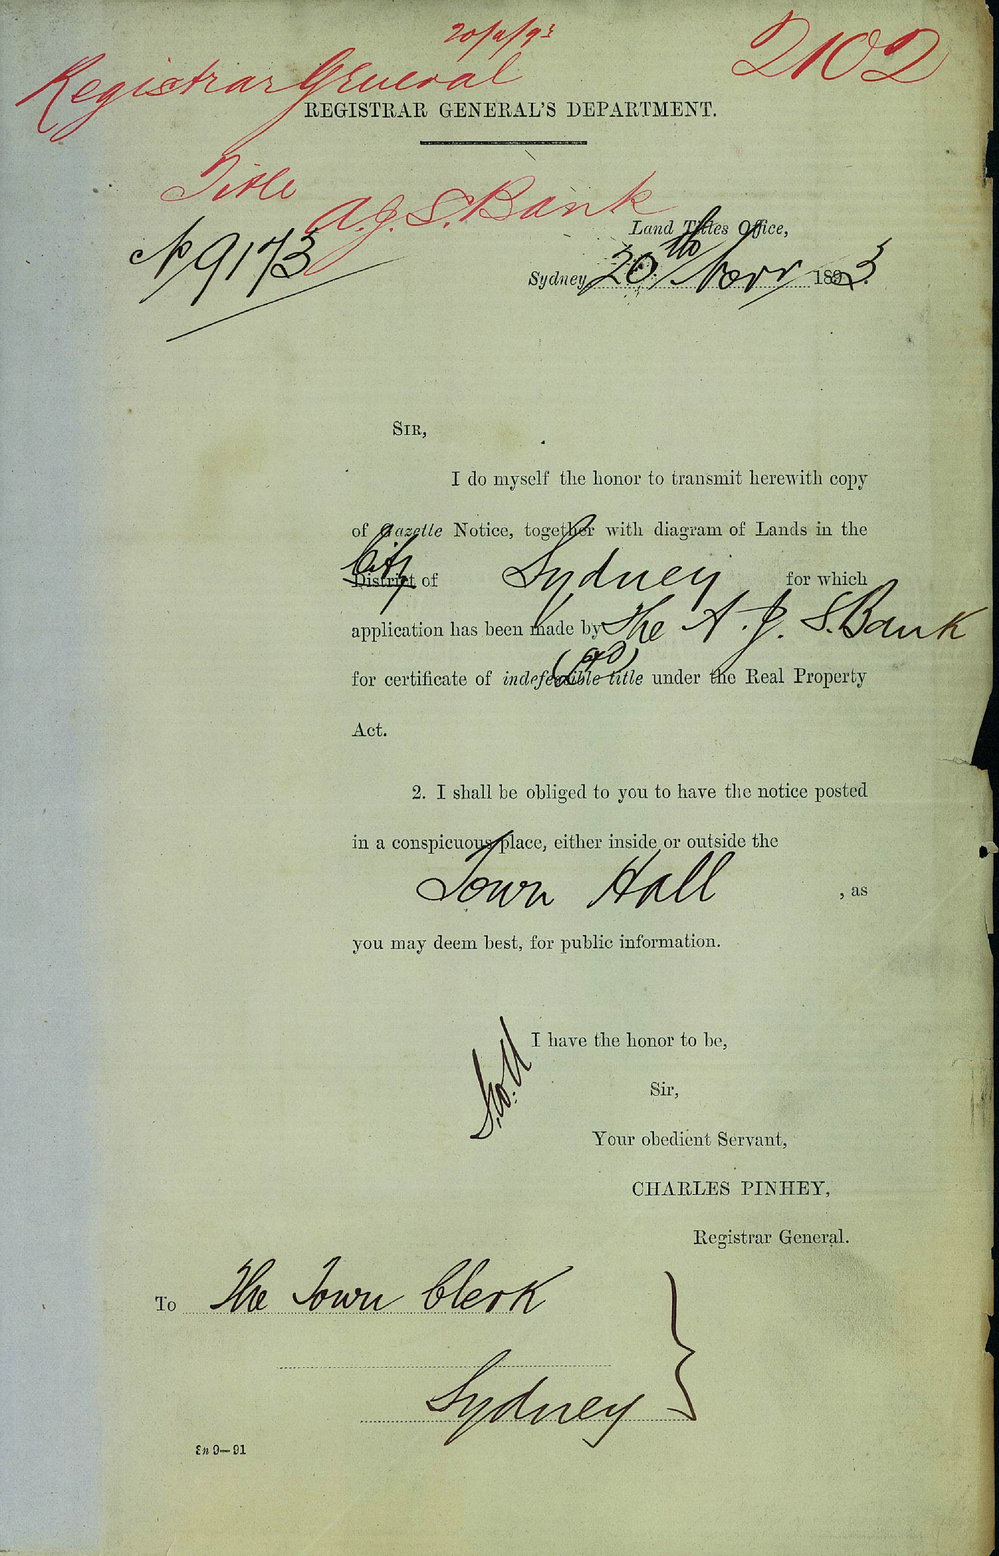 20/11/93
2102
Registrar General
REGISTRAR GENERAL'S DEPARTMENT.
Title
A. J. S. Bank
No 9173
Land Titles Office,
Sydney 20th Novr 1893.
SIR,
I do myself the honor to transmit herewith copy
of Gazette Notice, together with diagram of Lands in the
City
District of Sydney for which
application has been made by The A. J. S. Bank
for certificate of indefeasible title under the Real Property
Act.
2. I shall be obliged to you to have the notice posted
in a conspicuous place, either inside or outside the
Town Hall , as
you may deem best, for public information.
I have the honor to be,
Sir,
Your obedient Servant,
CHARLES PINHEY,
Registrar General.
To The Town Clerk
Sydney
9—91